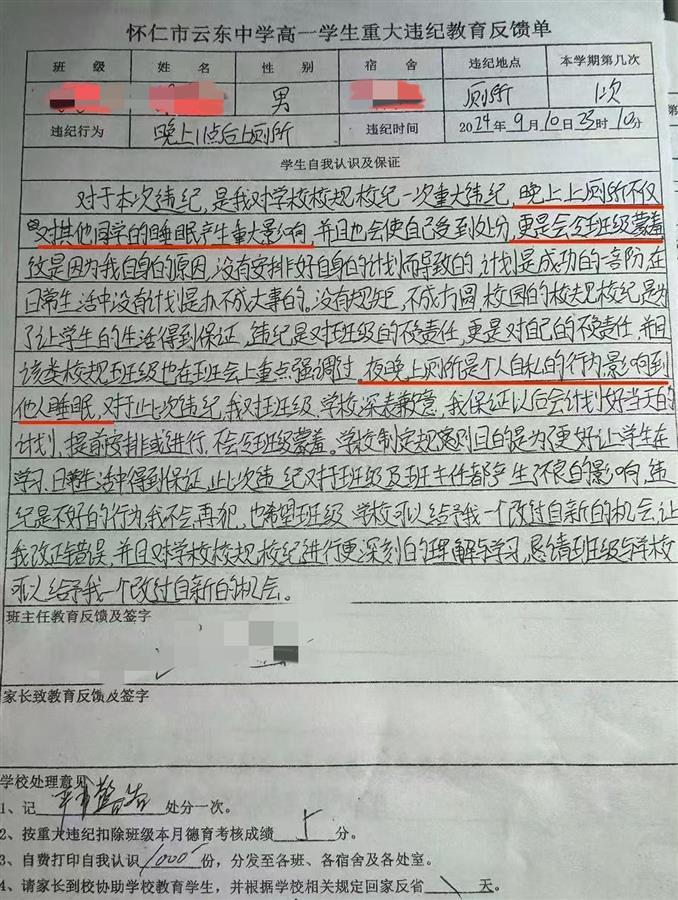 怀仁市云东中学高一学生重大违纪教育反馈单
班级 姓名 性别 宿舍 违纪地点 本学期第几次
男 厕所 1次
违纪行为 晚上11点后上厕所 违纪时间 2024年9月10日23时10分
学生自我认识及保证
对于本次违纪,是我对学校校规校纪一次重大违纪,晚上上厕所不仅
对其他同学的睡眠产生重大影响,并且也会使自己受到处分,更是会令班级蒙羞
这是因为我自身的原因,没有安排好自身的计划而导致的,计划是成功的一部份,在
日常生活中没有计划是办不成大事的。没有规矩,不成方圆,校园的校规校纪是为
了让学生的生活得到保证,违纪是对班级的不负责任,更是对自己的不负责任,并且
该类校规班级也在班会上重点强调过,夜晚上厕所是个人自私的行为,影响到
他人睡眠,对于此次违纪,我对班级、学校深表歉意,我保证以后会计划好当天的
计划,提前安排或进行,不会令班级蒙羞。学校制定规则目的是为了更好让学生在
学习、日常生活中得到保证,此次违纪对于班级及班主任都产生了不良的影响,违
纪是不好的行为,我不会再犯,也希望班级、学校可以给予我一个改过自新的机会,让
我改正错误,并且对学校校规、校纪进行更深刻的理解与学习,恳请班级与学校
可以给予我一个改过自新的机会。
班主任教育反馈及签字
家长致教育反馈及签字
学校处理意见
1、记 严重警告 处分一次。
2、按重大违纪扣除班级本月德育考核成绩 分。
3、自费打印自我认识 1000 份,分发至各班、各宿舍及各处室。
4、请家长到校协助学校教育学生,并根据学校相关规定回家反省 \ 天。